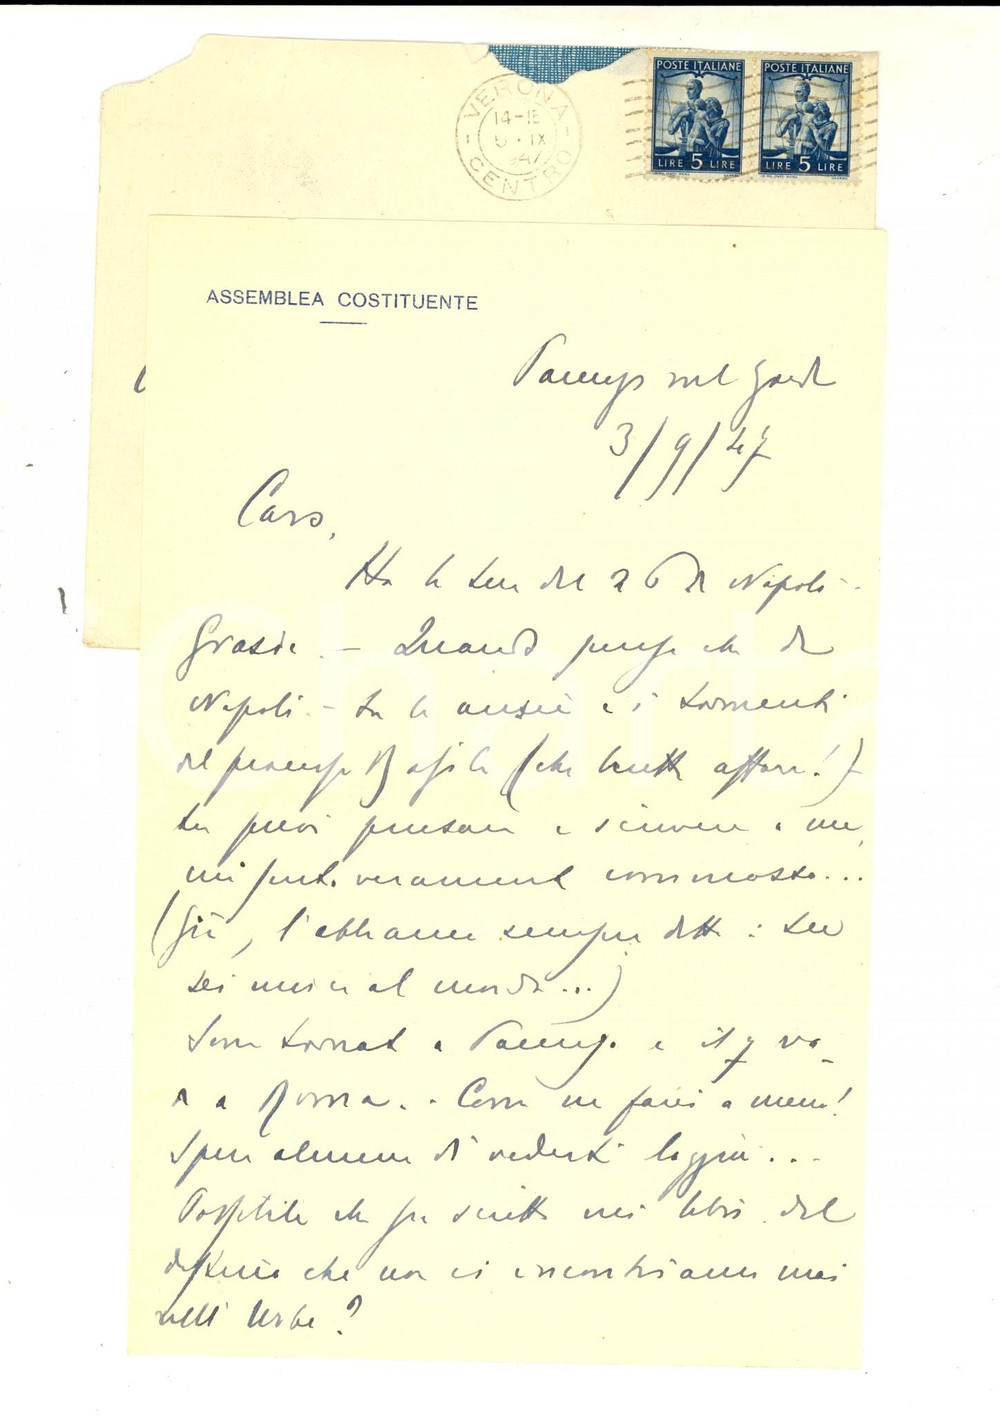 VERONA
14-18
IX
1947
CENTRO
POSTE ITALIANE
LIRE 5 LIRE
POSTE ITALIANE
LIRE 5 LIRE
ASSEMBLEA COSTITUENTE
sul Garda
3/9/47
Caro,
Ho la tua del 26 da Napoli.
Grazie. - Quando penso che da
Napoli - tra le ansie e i tormenti
del processo Basile (che brutto affare!)
tu puoi pensare e scrivere a me,
mi sento veramente commosso...
(Già, l'abbiamo sempre detto: tu
sei unico al mondo...)
Sono tornato a e il 7 va-
a Roma. - Come ne farei a meno!
Spero almeno di vederti laggiù...
Possibile che sia scritto nei libri del
destino che non ci incontriamo mai
nell' Urbe?